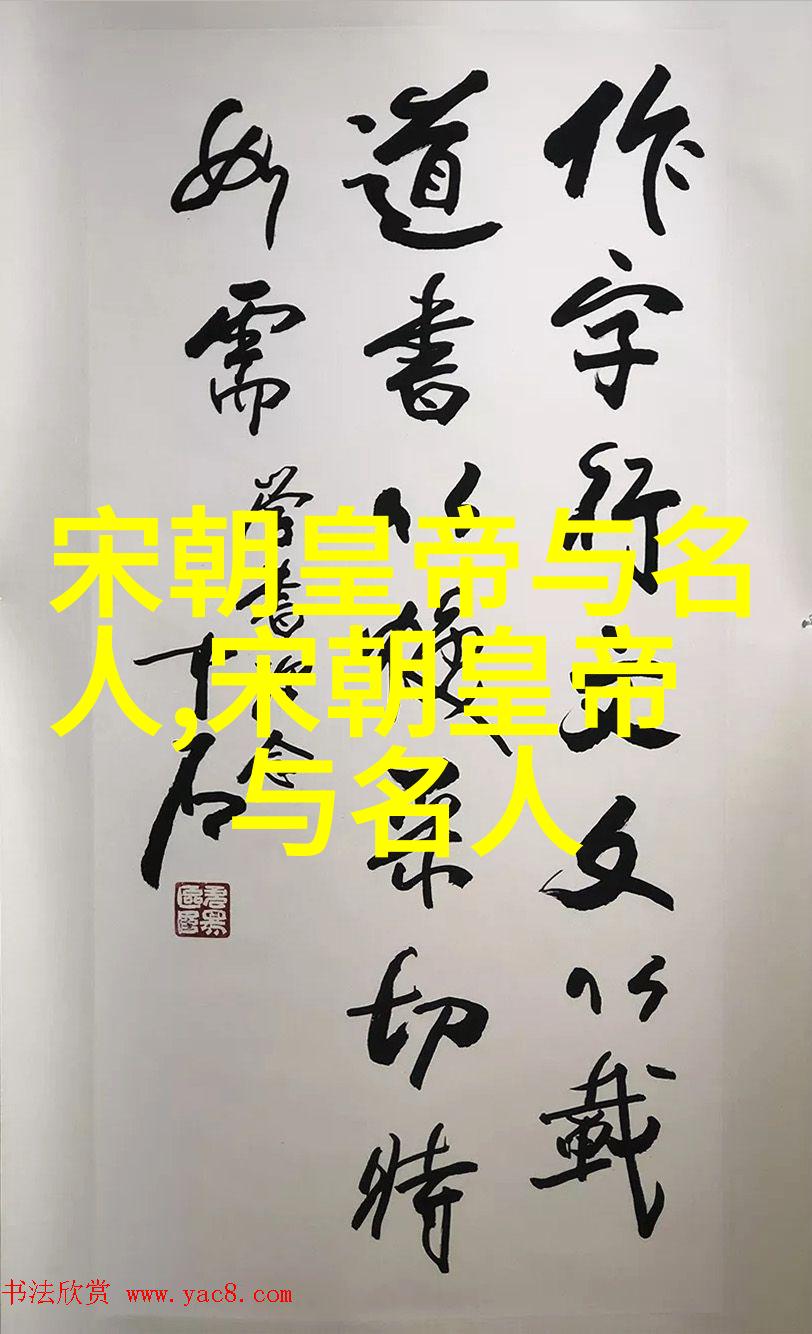 作字行文文以載
道書以煥采切時
如需
宋朝皇帝与名
人,宋朝皇帝
与名人
书法欣赏 www.yac8.com